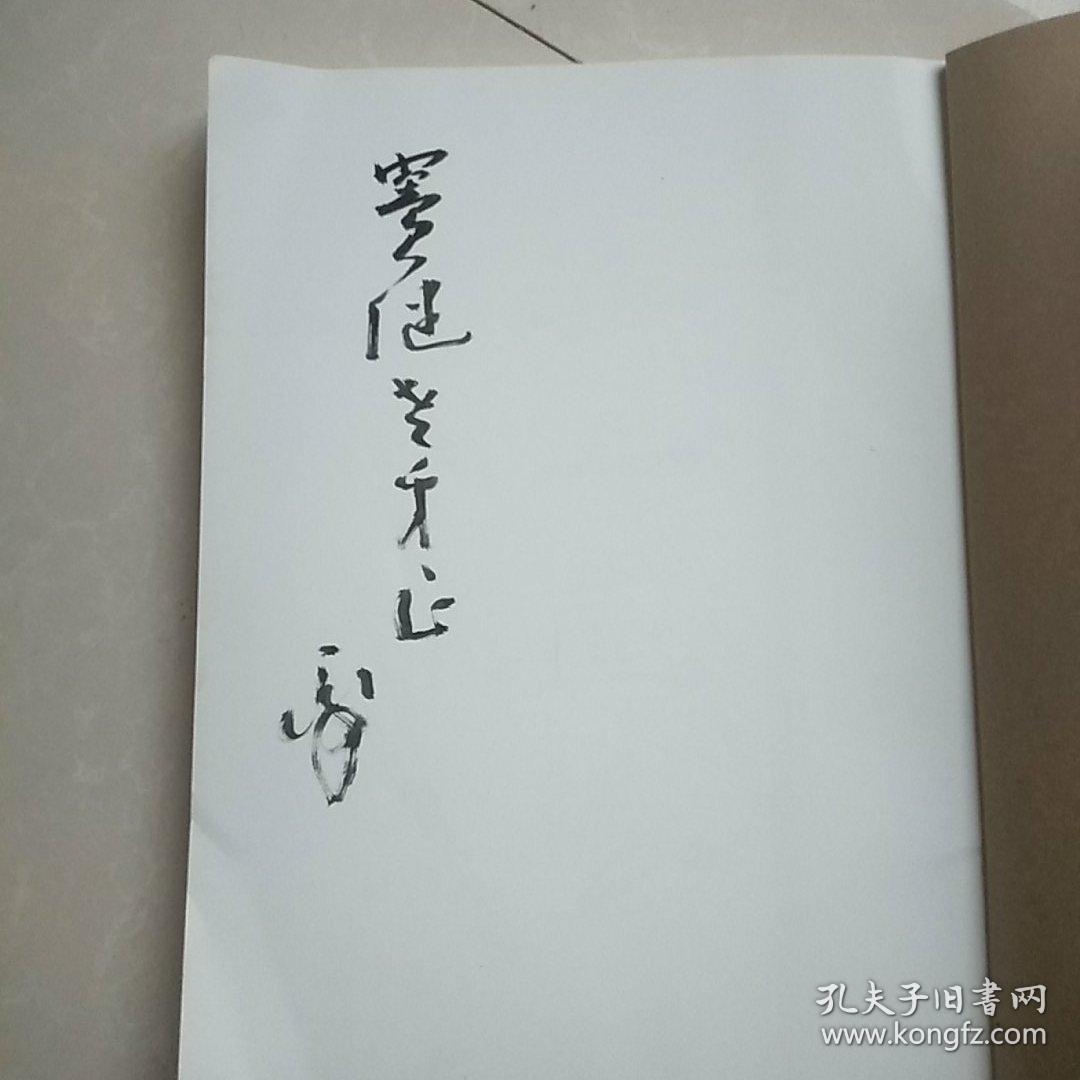 窦健老弟正
孔夫子旧書网
www.kongfz.com